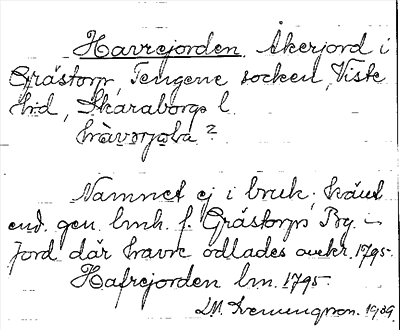 Havrejorden. Åkerjord i
Grästorp, Tengene socken, Viste
hd, Skaraborgs l.
hàvərjoɷa ?
Namnet ej i bruk, känt
end. gen. lmh. f. Grästorps By. –
Jord där havre odlades omkr. 1795.
Hafrejorden lm. 1795.
1939.